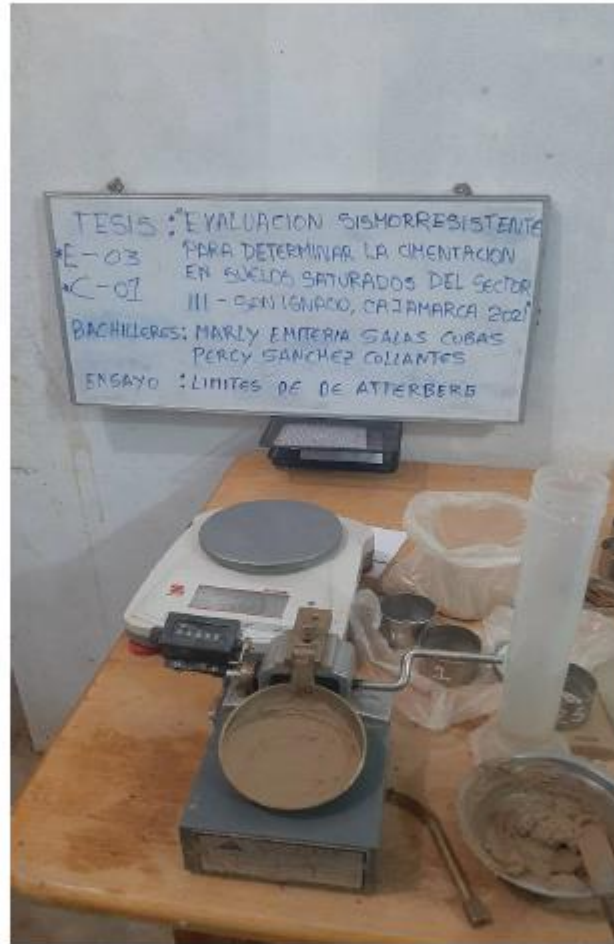 TESIS : "EVALUACION SISMORRESISTENTE
*E-03 PARA DETERMINAR LA CIMENTACION
*C-01 EN SUELOS SATURADOS DEL SECTOR
III - SAN IGNACO, CAJAMARCA 2021"
BACHILLERES: MARLY EMITERIA SALAS CUBAS
PERCY SANCHEZ COLLANTES
ENSAYO : LIMITES DE DE ATTERBERG
1